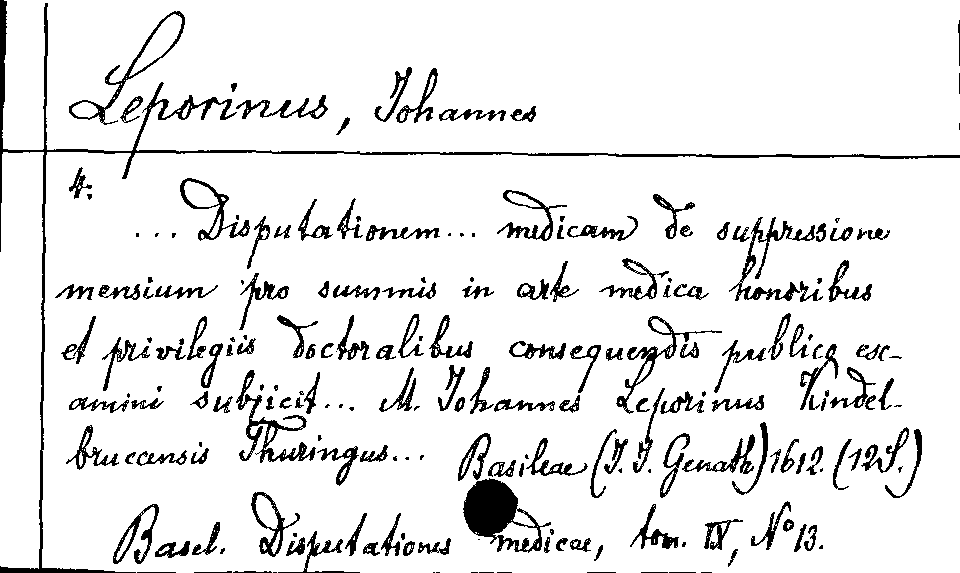 Leporinus, Johannes
4:
... Disputationem... medicam de suppressione
mensium pro summis in arte medica honoribus
et privilegiis doctoralibus consequendis publico ex-
amini subjicit... M. Johannes Leporinus Kindel-
bruccensis Thuringus... Basileae (J. J. Genath) 1612. (12 S.)
Basel. Disputationes medicae, tom. IX, No 13.